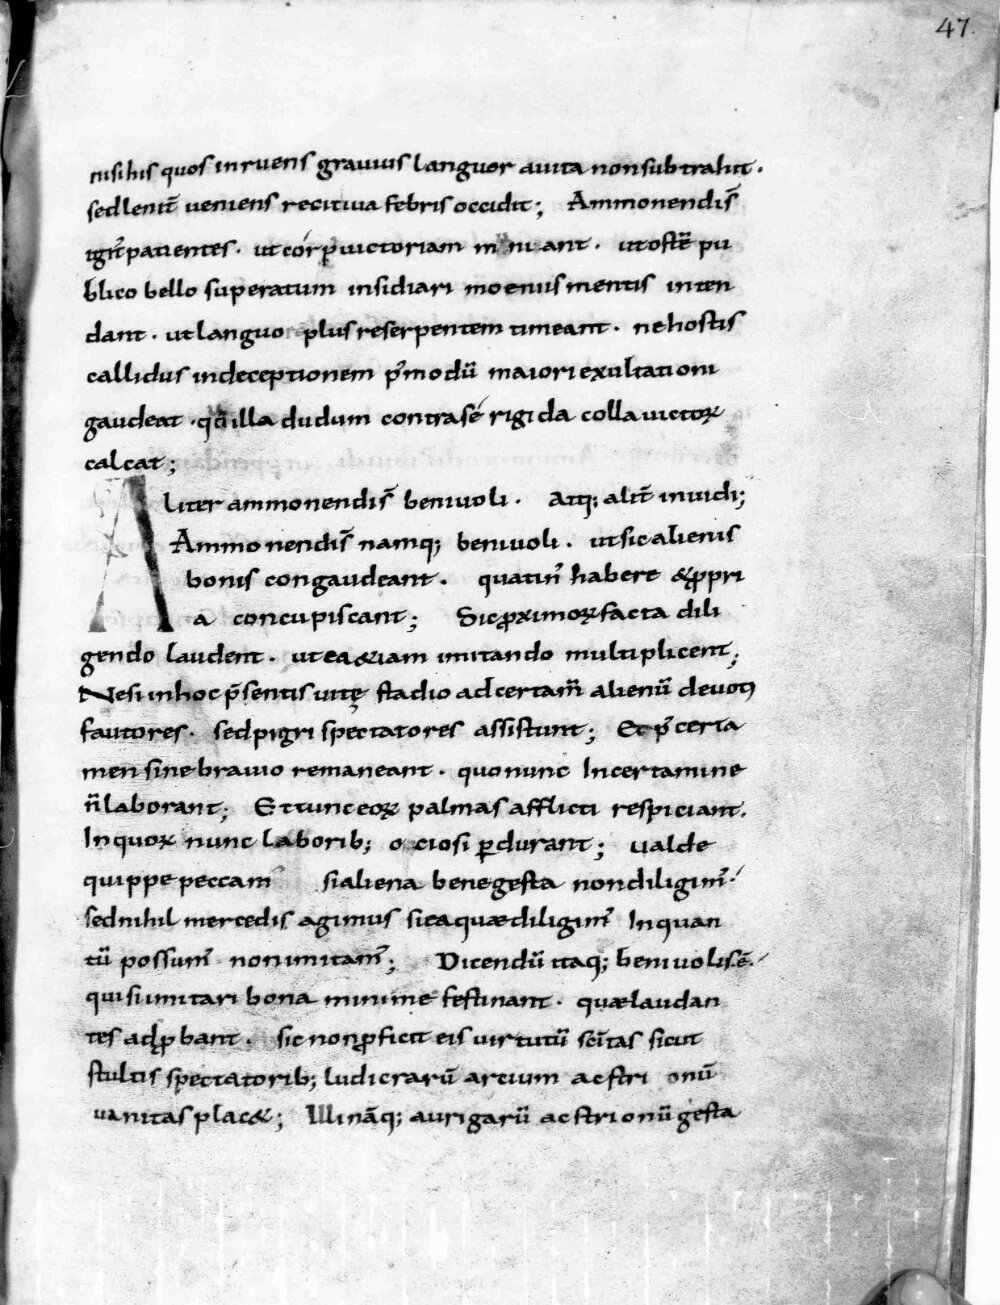 47.
nisi his quos inruens gravius languor a uita non subtrahit.
sed lenit̄ ueniens recitiua febris occidit; Ammonendis̄
igit̄ patientes. ut cor p̲ uictoriam muniant. ut ostē pu
blico bello superatum insidiari moenius mentis inten
dant. ut languo plus reserpentem timeant. ne hostis
callidus in deceptionem p̄modū maiori exultationi
gaudeat. qđ illa dudum contra sé rigida colla uictoꝝ
calcat;
Aliter ammonendis̄ beniuoli. Atq; alit̄ inuidi;
Ammonendis̄ namq; beniuoli. ut sic alienis
bonis congaudeant. quatin᾽ habere & ꝓpri
a concupiscant; Sic ꝓximoꝝ facta dili
gendo laudent. ut ea &iam imitando multiplicent;
Ne si in hoc p̄sentis uitę stadio ad certam̄ alienū deuoti
fautores. sed pigri spectatores assistunt; Et p̄ certa
men sine brauio remaneant. quo nunc In certamine
n̄ laborant; Et tunc eoꝝ palmas afflicti respiciant.
In quoꝝ nunc laborib; ociosi ꝑdurant; ualde
quippe peccam᾽ si aliena bene gesta non diligim᾽.
sed nihil mercedis agimus si ea quæ diligim᾽ In quan
tū possum᾽ non imitam᾽; Dicendū itaq; beniuolis ē.
qui si imitari bona minime festinant. quæ laudan
tes adꝓbant. sic non ꝓficit eis uirtutū scītas sicut
stultis spectatorib; ludicrarū artium ac stri onū
uanitas plac&; Illi nāq; aurigarū ac strionū gesta